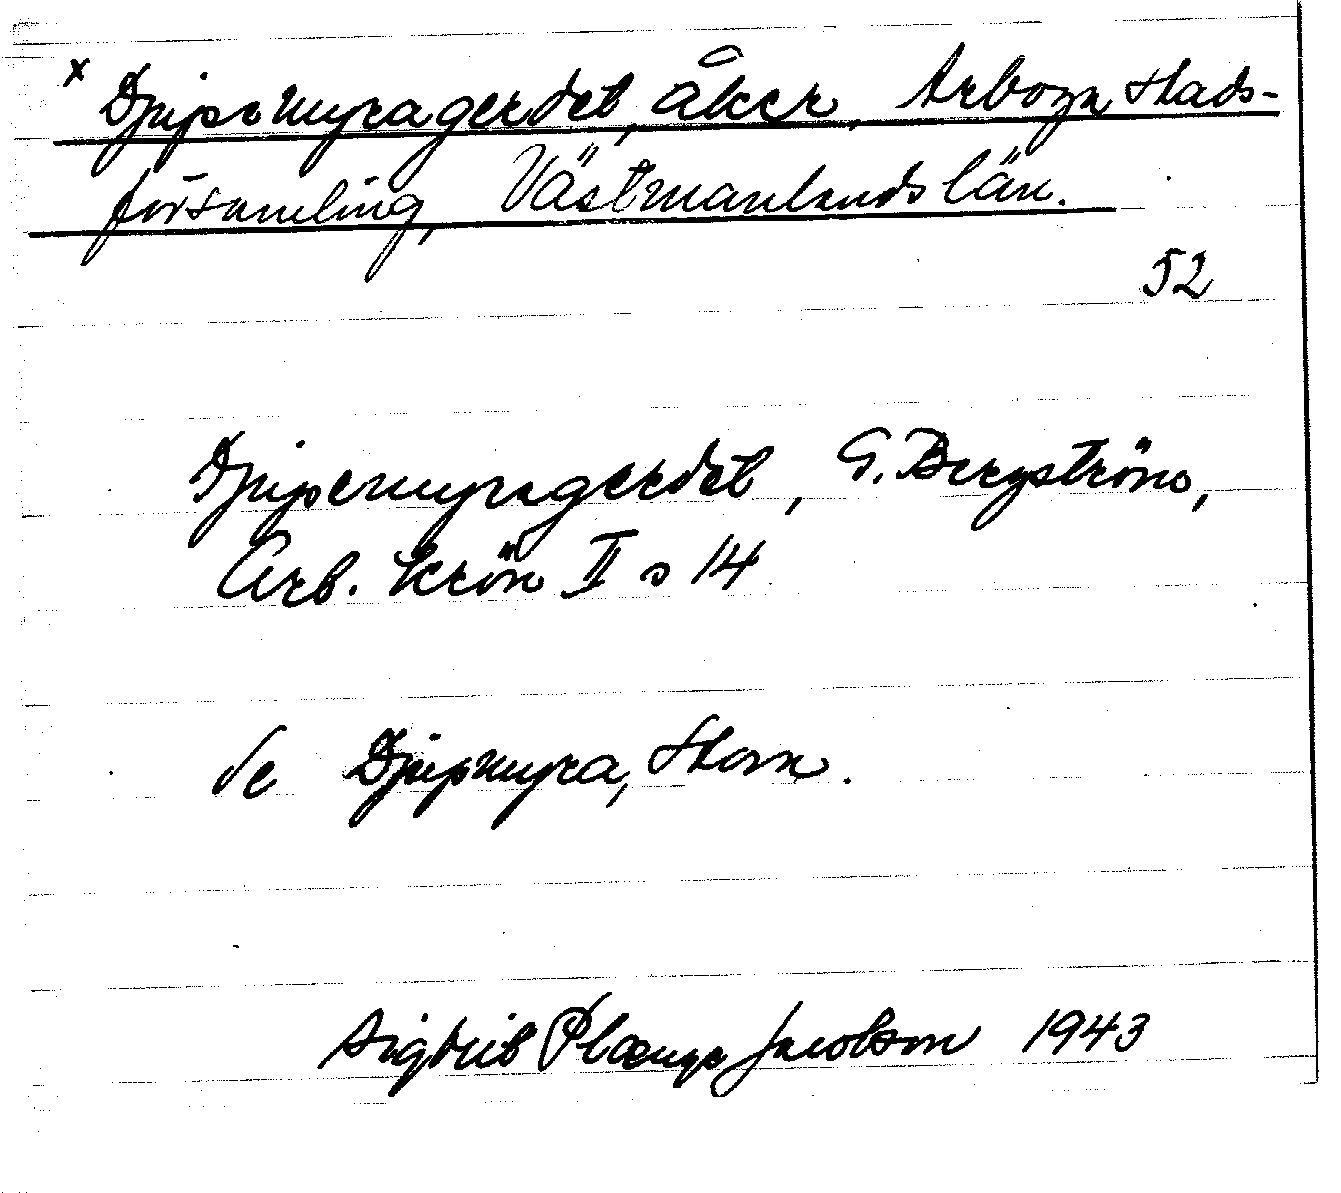 x Djupemyragerdet, åker, Arboga stads-
församling, Västmanlands län.
52
Djupemyragerdet, G. Bergström,
Arb. krön II s 14
se Djupmyra, Storn.
Sigdrid Plænge Jacobson 1943